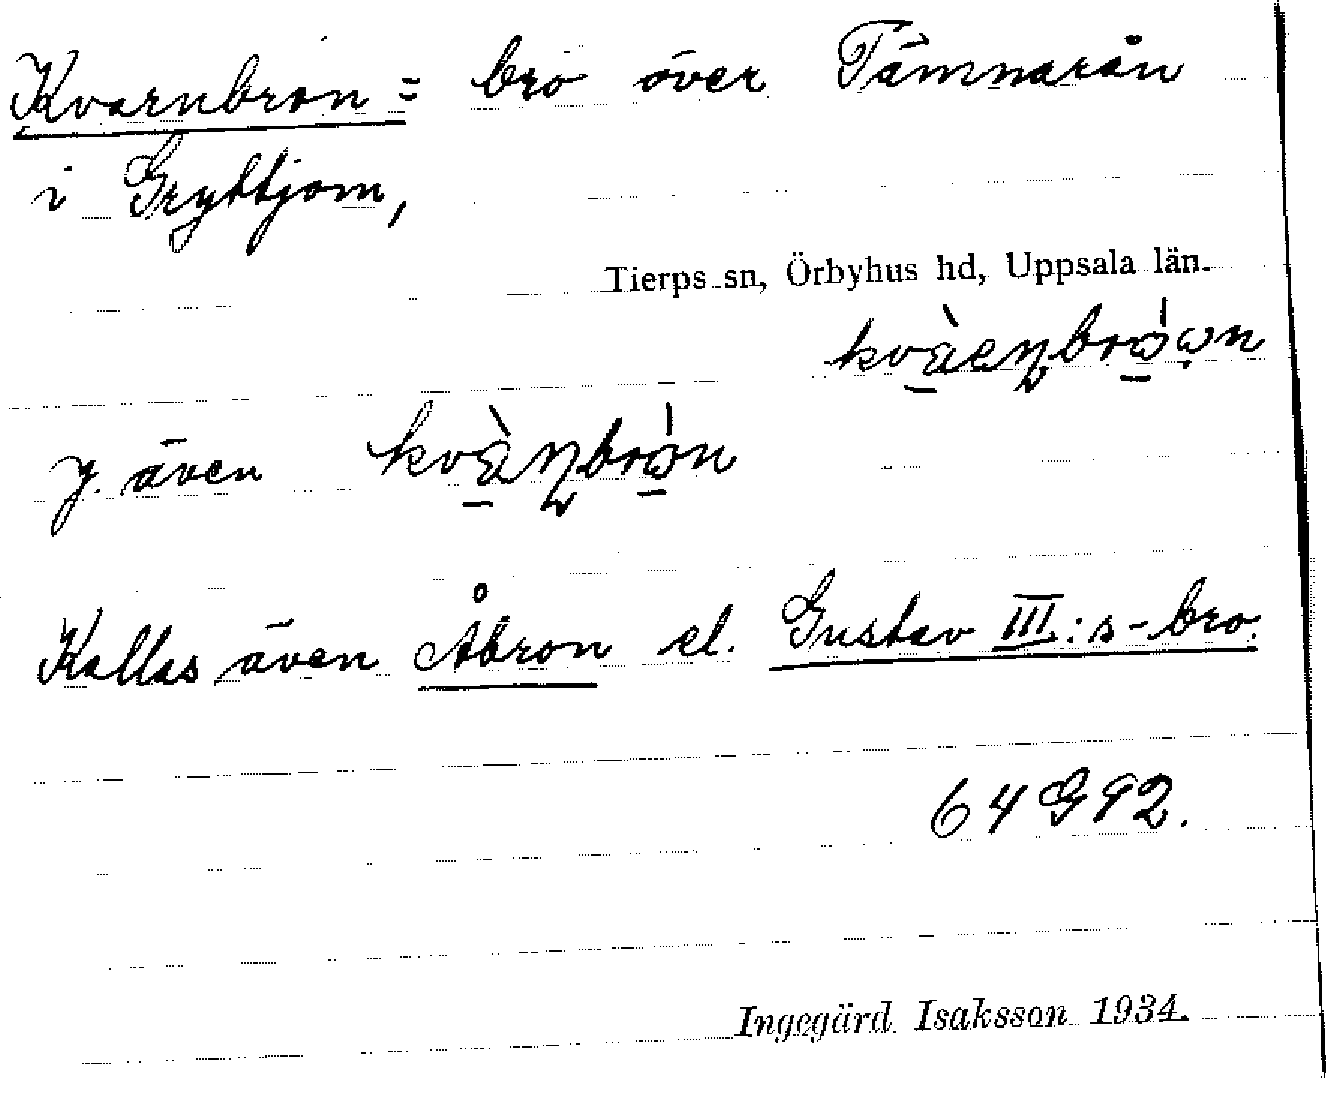 Kvarnbron = bro över Tämnarån
i Gryttjom,
Tierps sn, Örbyhus hd, Uppsala län.
y. även
Kallas även Åbron el. Gustav III:s-bro.
64 G 92.
Ingegärd Isaksson 1934.